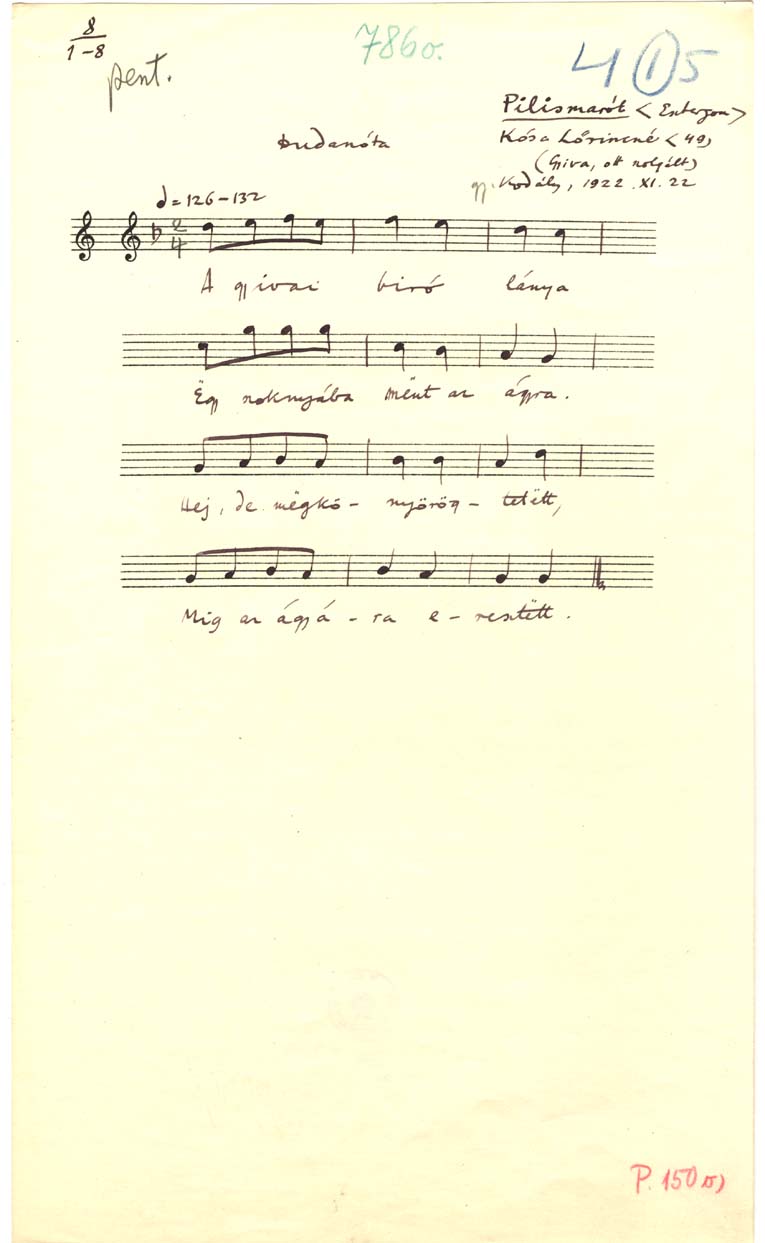 8
1-8
pent.
786o.
4 ① 5
Pilismarót < Esztergom >
Dudanóta
Kósa Lőrincné < 49)
(Gyiva, ott szolgált)
gy. Kodály, 1922. XI. 22
= 126-132
2
4
A gyivai biró lánya
Ëgy szoknyába mënt az ágyra.
Hej, de mëgkö- nyörög- tetëtt,
Mig az ágyá - ra e- resztëtt.
P. 150